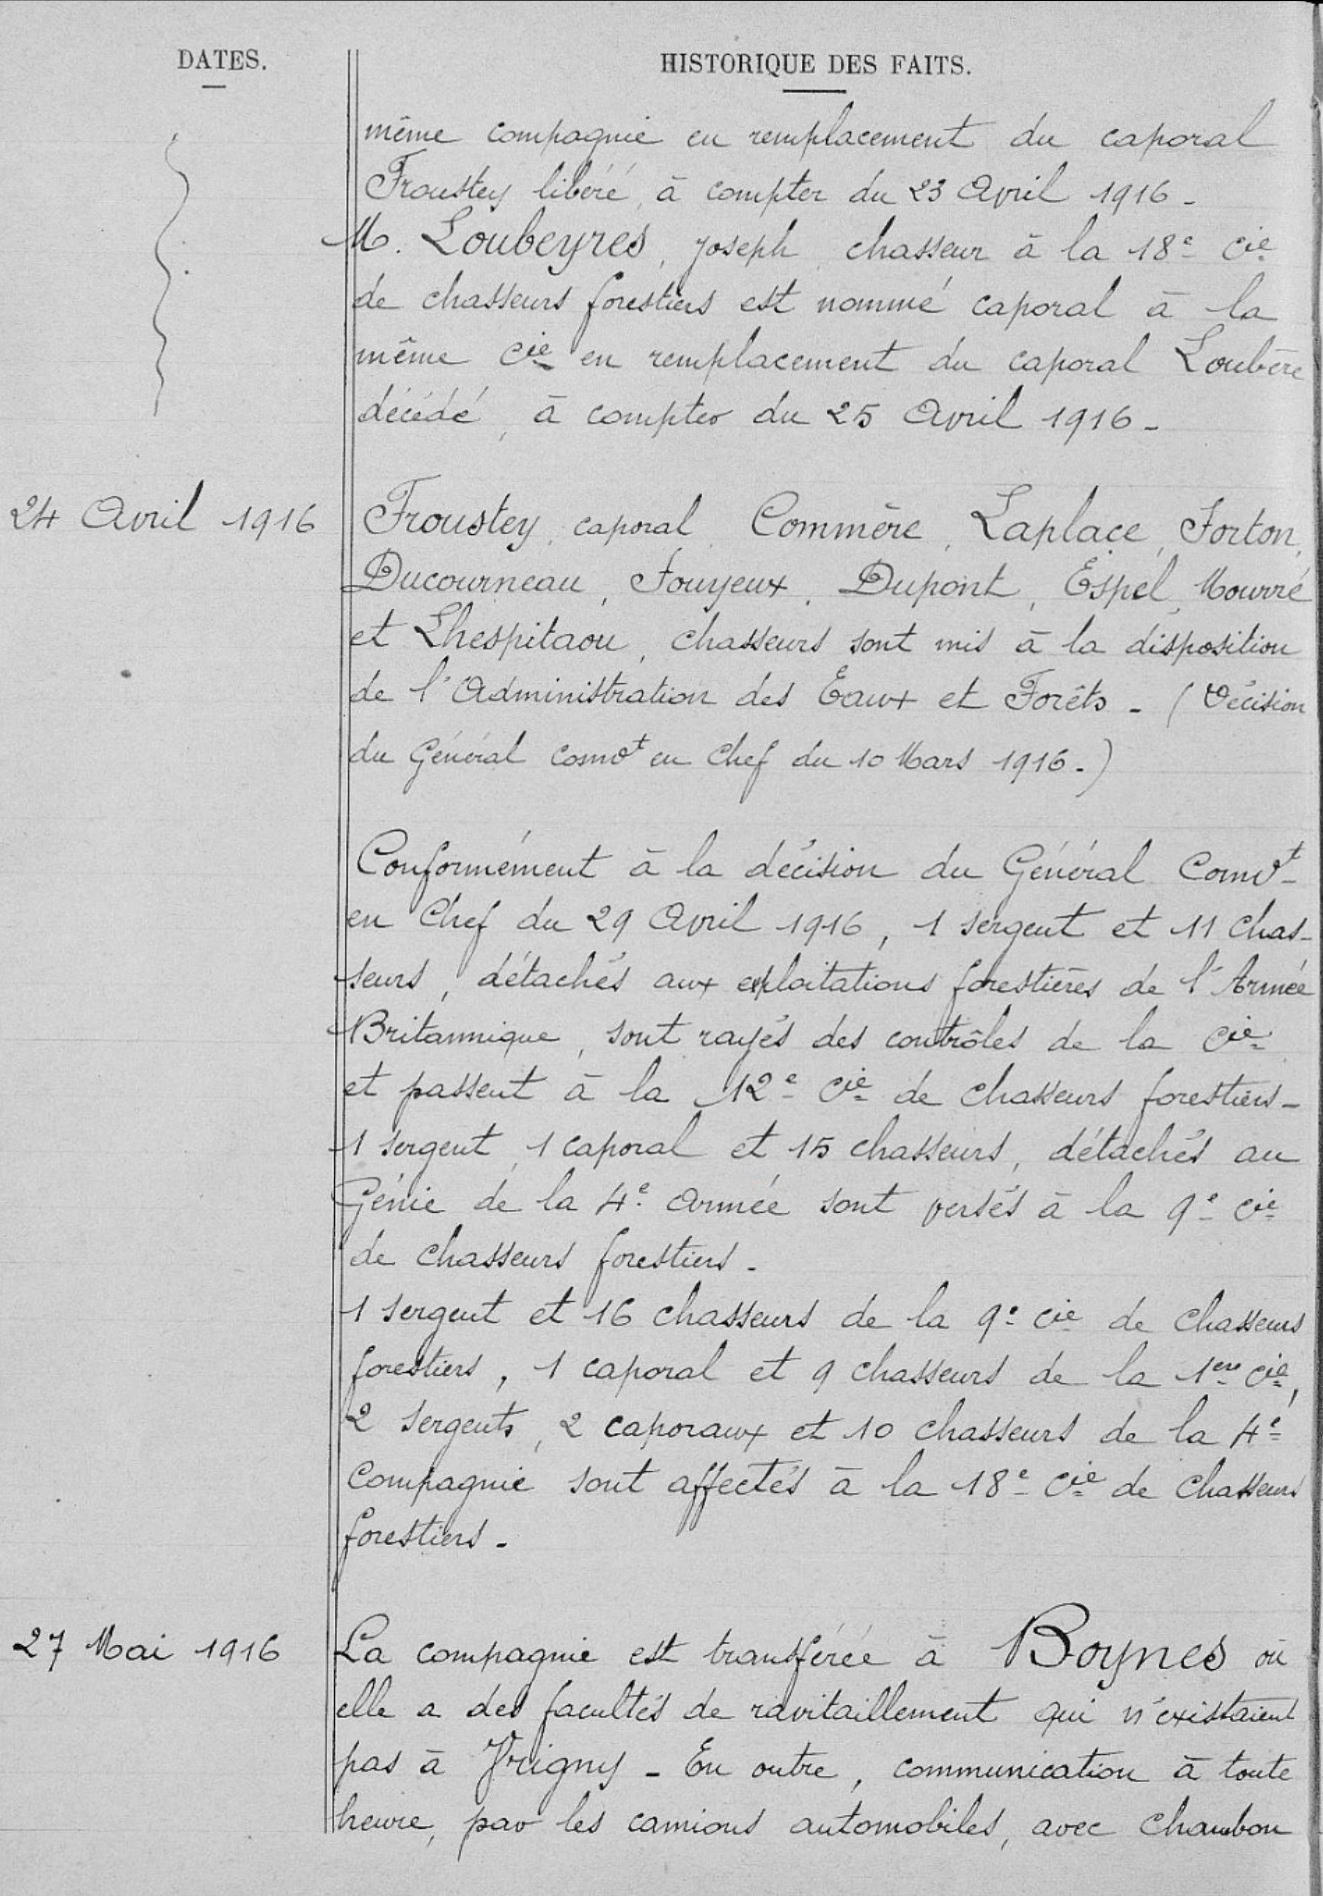 DATES.
HISTORIQUE DES FAITS.
même compagnie en remplacement du caporal
Froustey libéré, à compter du 23 Avril 1916 -
M. Loubeyres, Joseph, chasseur à la 18e Cie
de chasseurs forestiers est nommé caporal à la
même Cie en remplacement du caporal Loubère
décédé, à compter du 25 Avril 1916 -
24 Avril 1916
Froustey, caporal, Commère, Laplace, Forton,
Ducourneau, Fouyeux, Dupont, Espel, Mourré
et Lhespitaou, chasseurs sont mis à la disposition
de l'Administration des Eaux et Forêts - (Décision
du Général Comdt en Chef du 10 Mars 1916 -)
Conformément à la décision du Général Comdt
en Chef du 29 Avril 1916, 1 sergent et 11 chas-
seurs, détachés aux exploitations forestières de l'Armée
Britannique, sont rayés des contrôles de la Cie
et passent à la 12e Cie de chasseurs forestiers -
1 sergent, 1 caporal et 15 chasseurs, détachés au
Génie de la 4e Armée sont versés à la 9e Cie
de chasseurs forestiers -
1 sergent et 16 chasseurs de la 9e Cie de chasseurs
forestiers, 1 caporal et 9 chasseurs de la 1ere Cie,
2 sergents, 2 caporaux et 10 chasseurs de la 4e
Compagnie sont affectés à la 18e Cie de chasseurs
forestiers -
27 Mai 1916
La compagnie est transférée à Boynes où
elle a des facultés de ravitaillement qui n'existaient
pas à Vrigny - En outre, communication à toute
heure, par les camions automobiles, avec Chambon